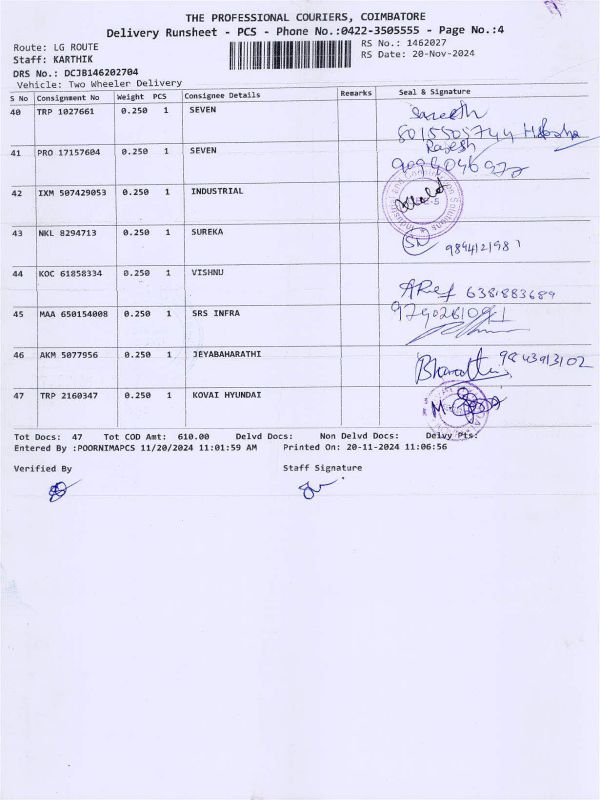 THE PROFESSIONAL COURIERS, COIMBATORE
Delivery Runsheet - PCS - Phone No.:0422-3505555 - Page No.:4
Route: LG ROUTE
RS No.: 1462027
Staff: KARTHIK
RS Date: 20-Nov-2024
DRS No.: DCJB146202704
Vehicle: Two Wheeler Delivery
S No Consignment No Weight PCS Consignee Details Remarks Seal & Signature
40 TRP 1027661 0.250 1 SEVEN
41 PRO 17157604 0.250 1 SEVEN
Rajesh
42 IXM 507429053 0.250 1 INDUSTRIAL
43 NKL 8294713 0.250 1 SUREKA
9894121987
44 KOC 61858334 0.250 1 VISHNU
6381883689
45 MAA 650154008 0.250 1 SRS INFRA
46 AKM 5077956 0.250 1 JEYABAHARATHI
9843913102
47 TRP 2160347 0.250 1 KOVAI HYUNDAI
Tot Docs: 47 Tot COD Amt: 610.00 Delvd Docs: Non Delvd Docs: Delvy Pts:
Entered By :POORNIMAPCS 11/20/2024 11:01:59 AM Printed On: 20-11-2024 11:06:56
Verified By Staff Signature